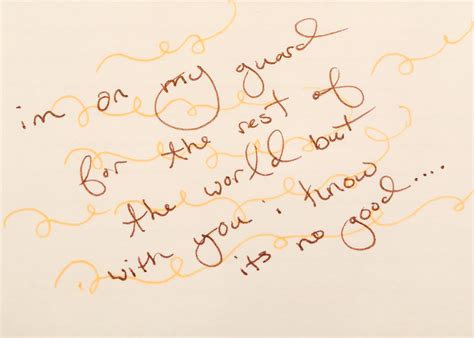 im on my guard
for the rest of
the world but
with you i know
its no good....